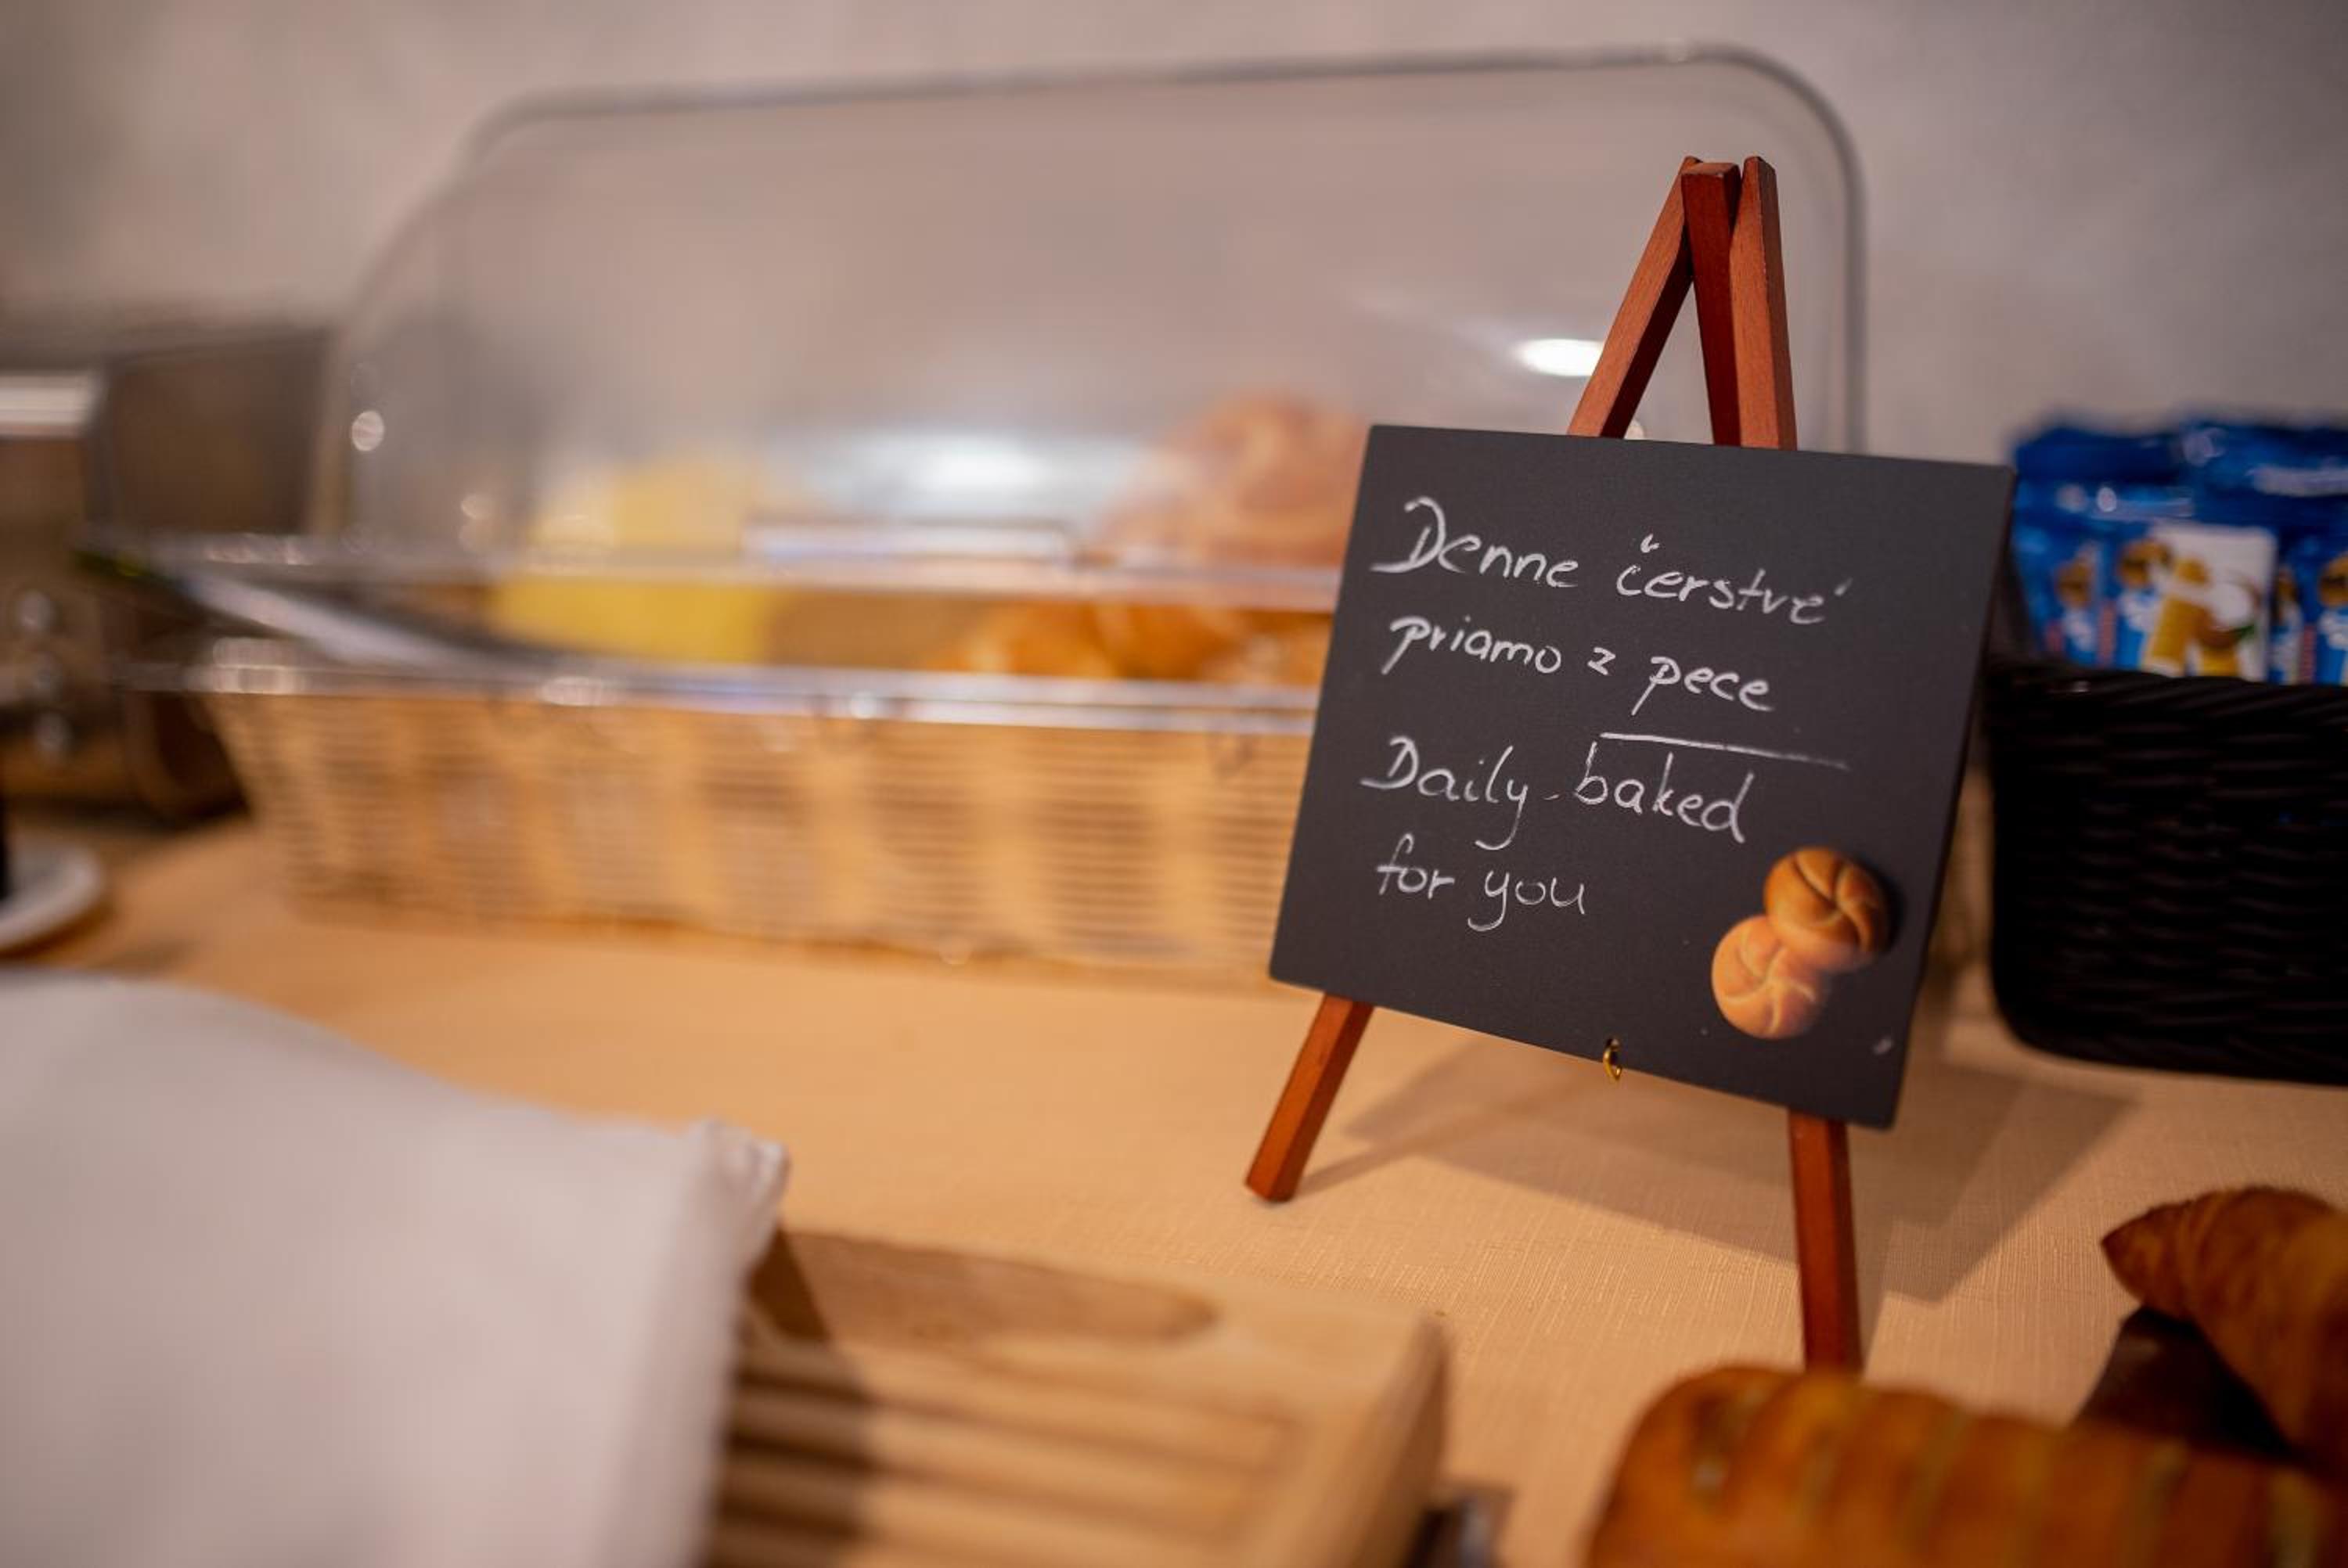 Denne čerstvé
priamo z pece
Daily baked
for you